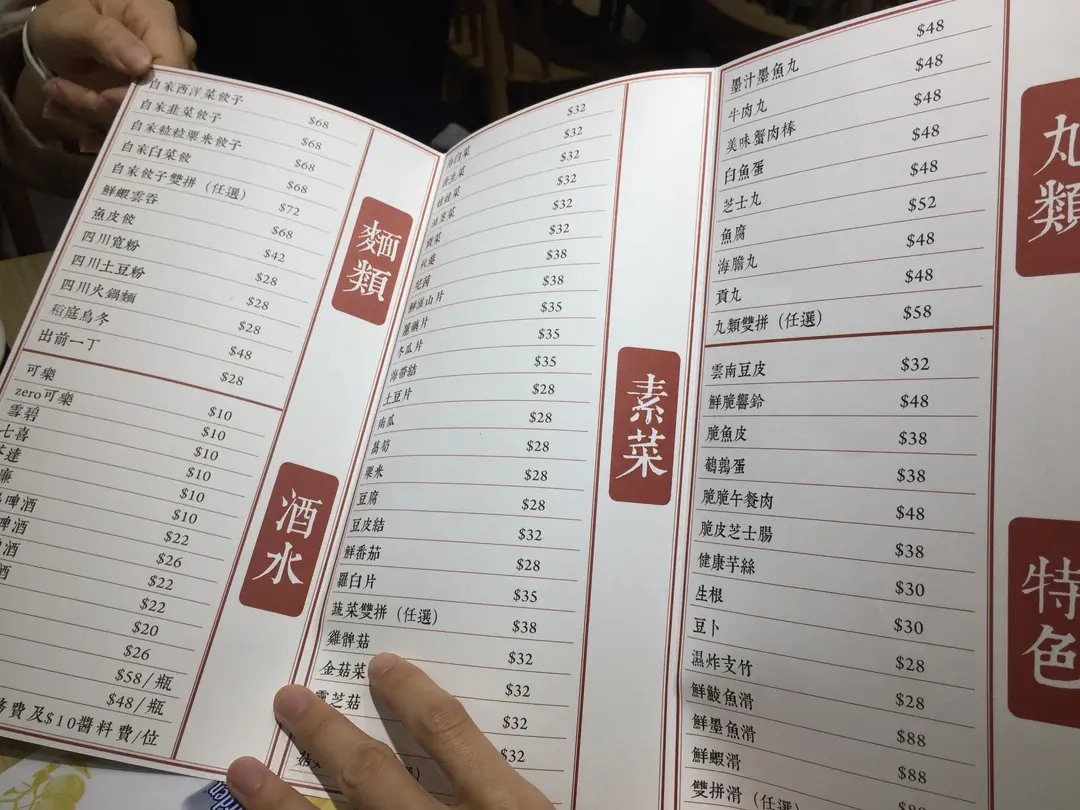 自家西洋菜餃子 $68
自家韭菜餃子 $68
自家粒粒粟米餃子 $68
自家白菜餃 $68
自家餃子雙拼（任選） $72
鮮蝦雲吞 $68
魚皮餃 $42
四川寬粉 $28
四川土豆粉 $28
四川火鍋麵 $28
稻庭烏冬 $48
出前一丁 $28
麵類
可樂 $10
zero可樂 $10
雪碧 $10
七喜 $10
$10
$10
啤酒 $22
啤酒 $26
啤酒 $22
酒 $22
$20
$26
$58/瓶
$48/瓶
費及$10醬料費/位
酒水
$32
$32
$32
$32
$32
$32
$38
鮮淮山片 $38
蓮藕片 $35
冬瓜片 $35
海帶結 $35
土豆片 $28
南瓜 $28
萵筍 $28
粟米 $28
豆腐 $28
豆皮結 $32
鮮番茄 $28
羅白片 $35
蔬菜雙拼（任選） $38
雞髀菇 $32
金菇菜 $32
靈芝菇 $32
菇 $32
素菜
$48
墨汁墨魚丸 $48
牛肉丸 $48
美味蟹肉棒 $48
白魚蛋 $48
芝士丸 $52
魚腐 $48
海膽丸 $48
貢丸 $58
丸類雙拼（任選）
丸類
雲南豆皮 $32
鮮脆響鈴 $48
脆魚皮 $38
鵪鶉蛋 $38
脆脆午餐肉 $48
脆皮芝士腸 $38
健康芋絲 $30
生根 $30
豆卜 $28
濕炸支竹 $28
鮮鯪魚滑 $88
鮮墨魚滑 $88
鮮蝦滑
雙拼滑（任選）
特色